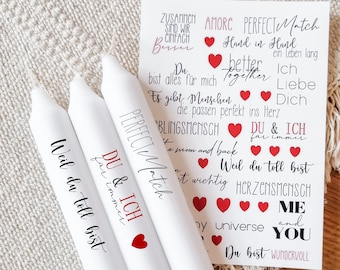 Weil du toll bist
DU & ICH
für immer
PERFECTMatch
ZUSAMMEN
SIND WIR
EINFACH
Besser
AMORE
PERFECTMatch
Hand in Hand
ein leben lang
better
together
Du
bist alles für mich
Ich
Liebe
Dich
Es gibt Menschen
die passen perfekt ins Herz
LIEBLINGSMENSCH
DU & ICH
für immer
the moon and back
Weil du toll bist
wichtig
HERZENSMENSCH
my universe
ME
and
YOU
Du bist WUNDERVOLL